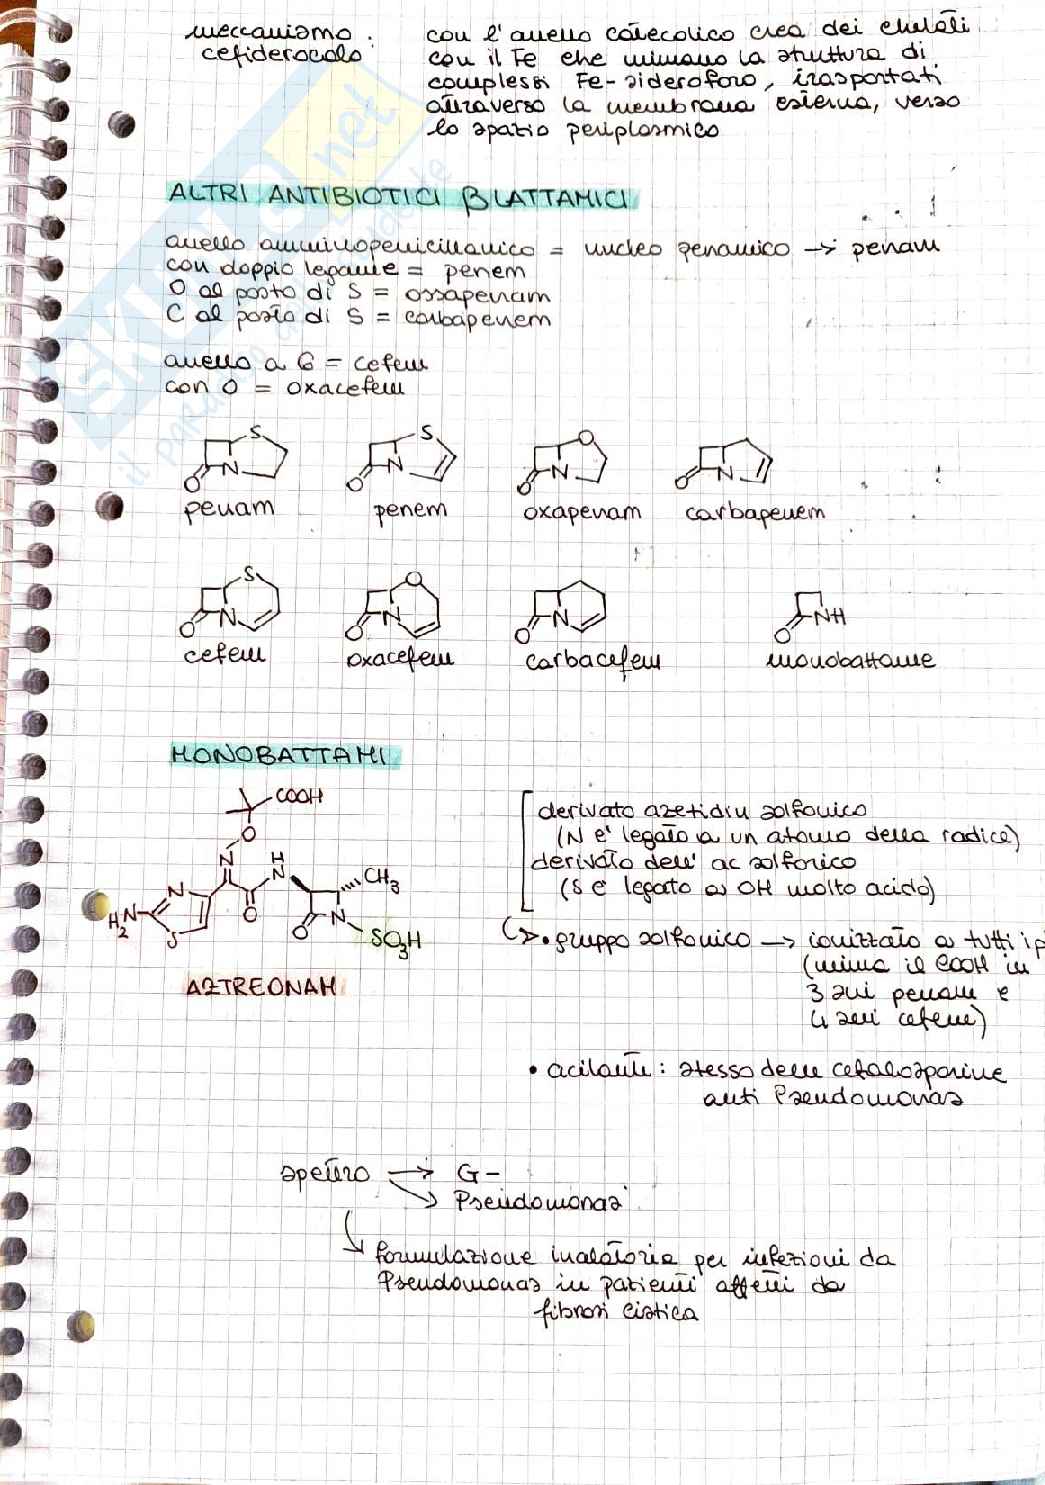 meccanismo: con l'anello catecolico crea dei chelati
cefiderocolo con il Fe che mimano la struttura di
complessi Fe-sideroforo, trasportati
attraverso la membrana esterna, verso
lo spazio periplasmico
ALTRI ANTIBIOTICI β LATTAMICI
anello amminopenicillanico = nucleo penamico → penam
con doppio legame = penem
O al posto di S = ossapenam
C al posto di S = carbapenem
anello a 6 = cefem
con O = oxacefem
S S O
O N O N O N O N
penam penem oxapenam carbapenem
S O
O N O N O N O NH
cefem oxacefem carbacefem monobattame
MONOBATTAMI
COOH
derivato azetidin solfonico
O
(N e' legato a un atomo della radice)
N H N
derivato dell' ac solforico
N CH3
(S e legato a OH molto acido)
H2N O O N
S SO3H
• gruppo solfonico → ionizzato a tutti i p
(mima il COOH in
AZTREONAM
3 sui penam e
4 sui cefeme)
• acilante: stesso delle cefalosporine
anti Pseudomonas
spettro → G-
→ Pseudomonas
formulazione inalatoria per infezioni da
Pseudomonas in pazienti affetti da
fibrosi cistica
SKUOLA.net
il paradiso dello studente